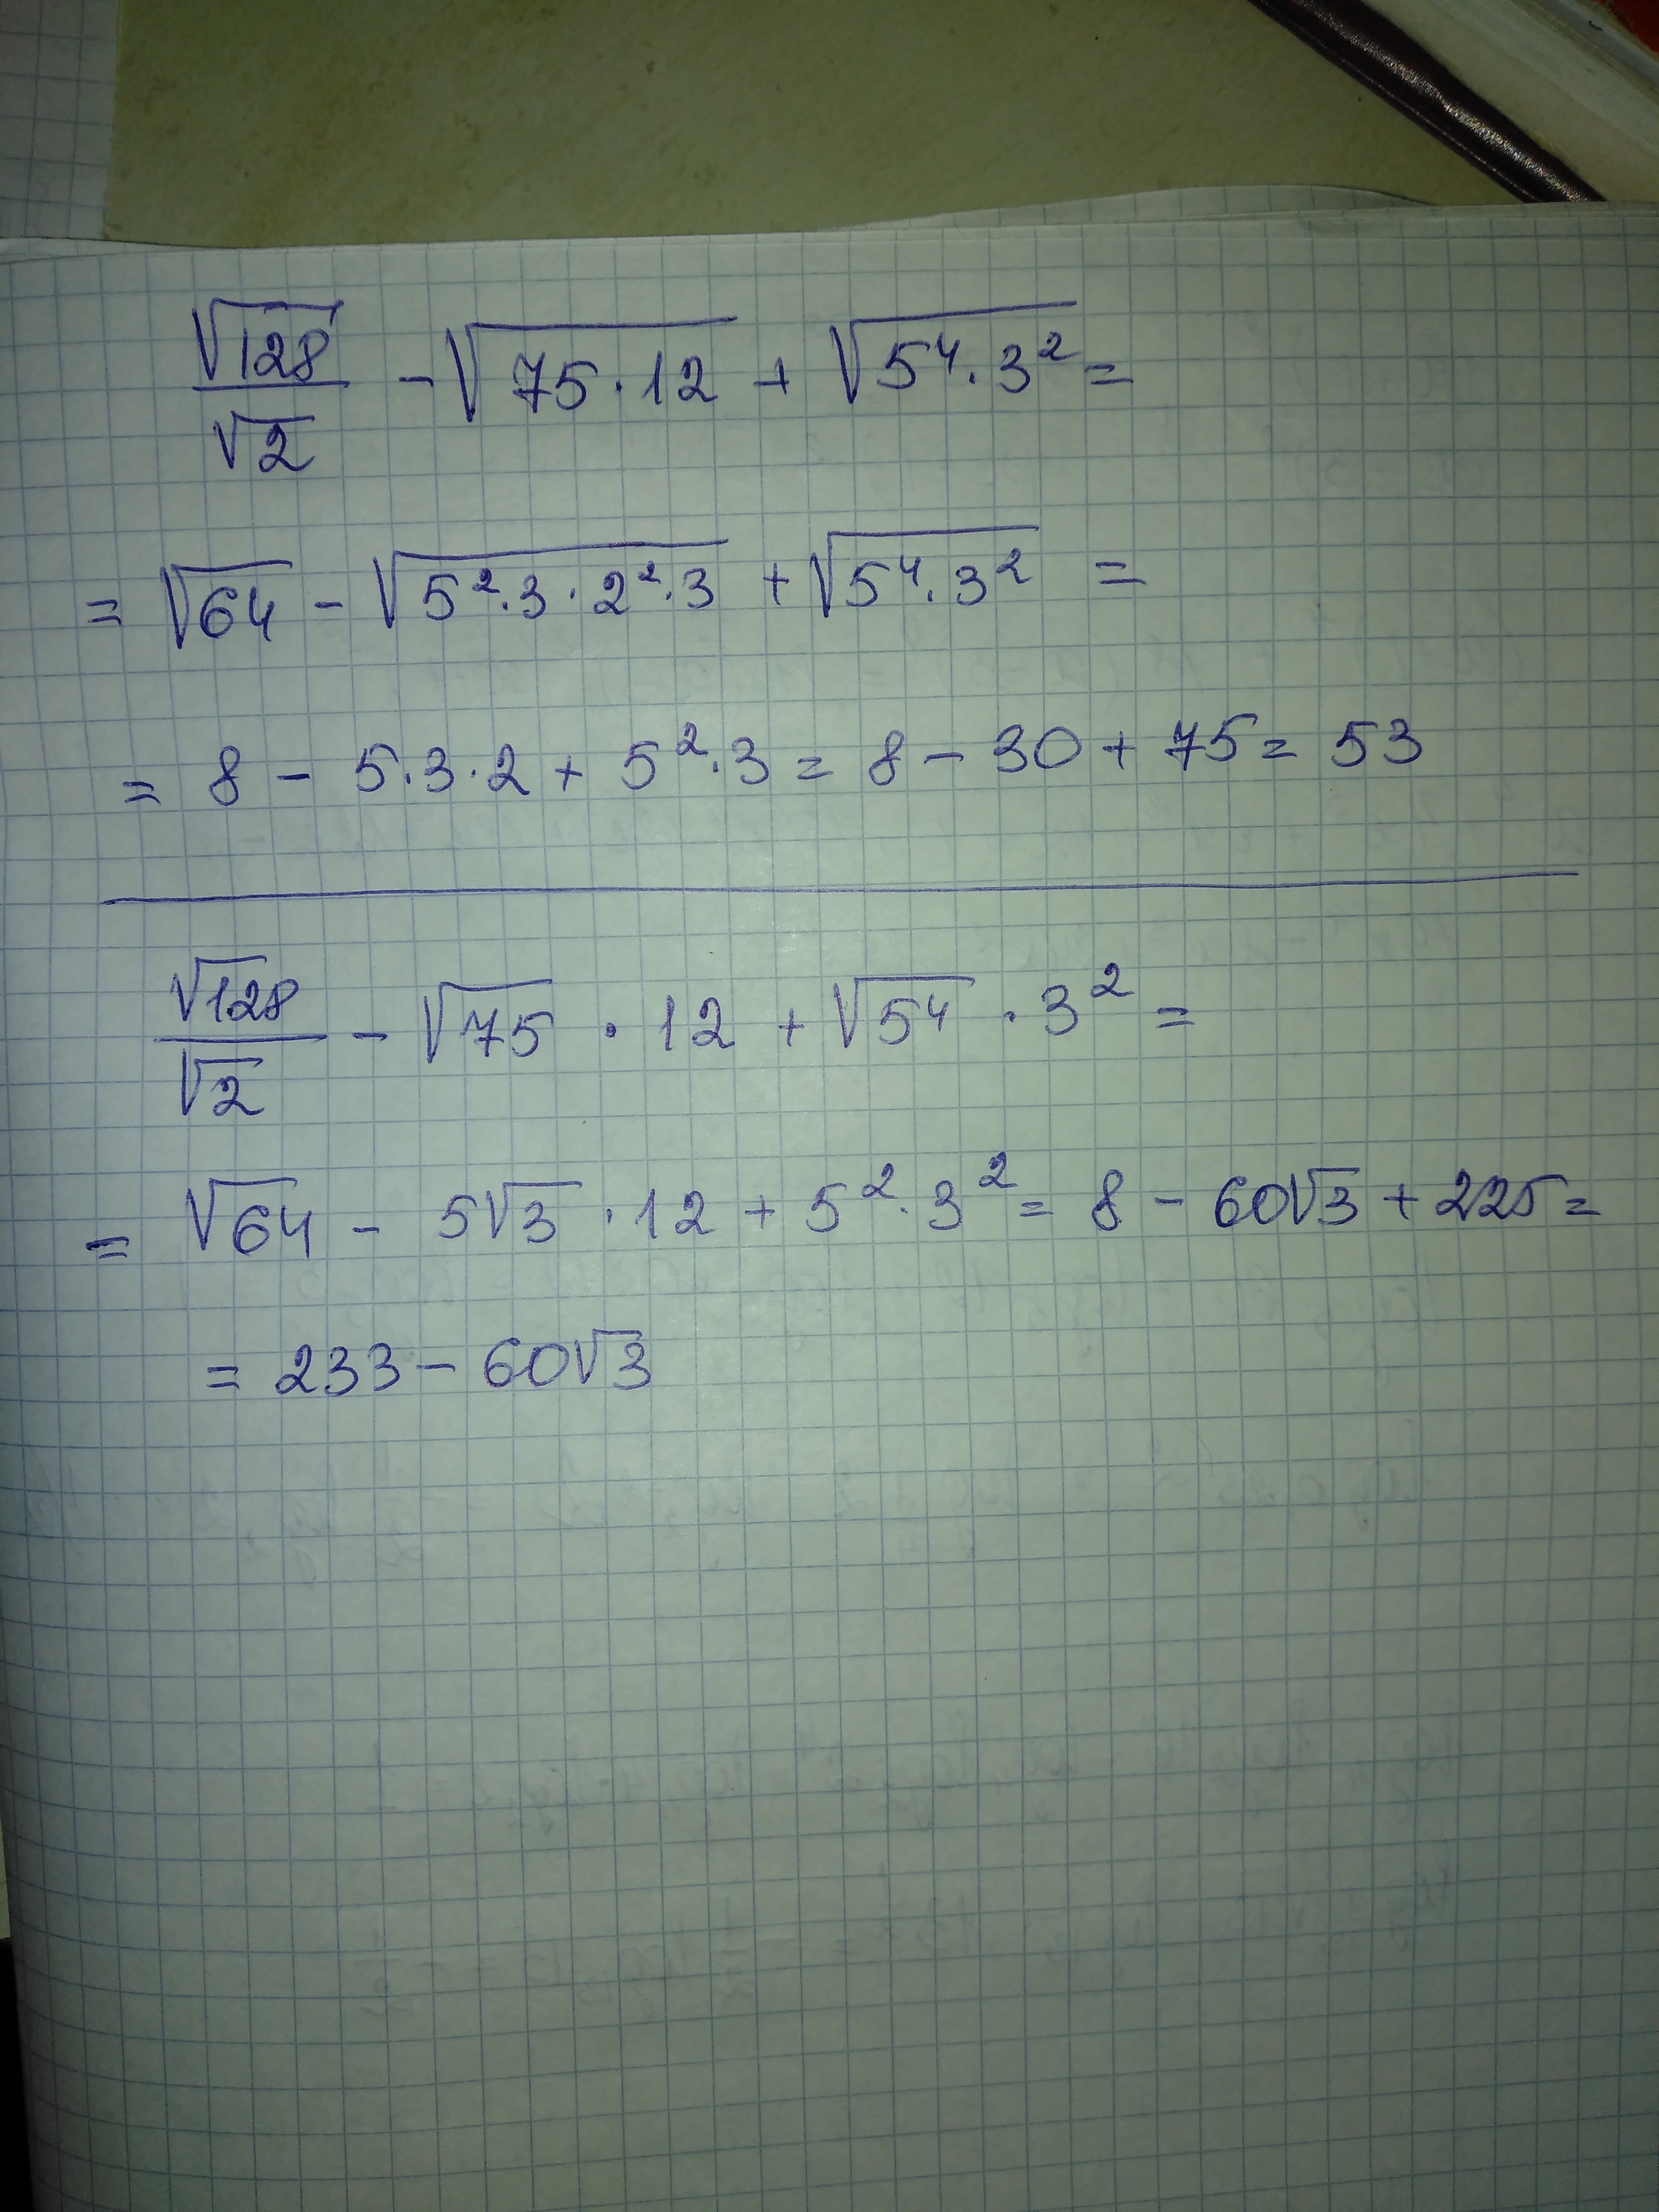 √128/√2 - √(75·12) + √(5⁴·3²) =
= √64 - √(5²·3·2²·3) + √(5⁴·3²) =
= 8 - 5·3·2 + 5²·3 = 8 - 30 + 75 = 53
√128/√2 - √75 · 12 + √5⁴ · 3² =
= √64 - 5√3 · 12 + 5²·3² = 8 - 60√3 + 225 =
= 233 - 60√3